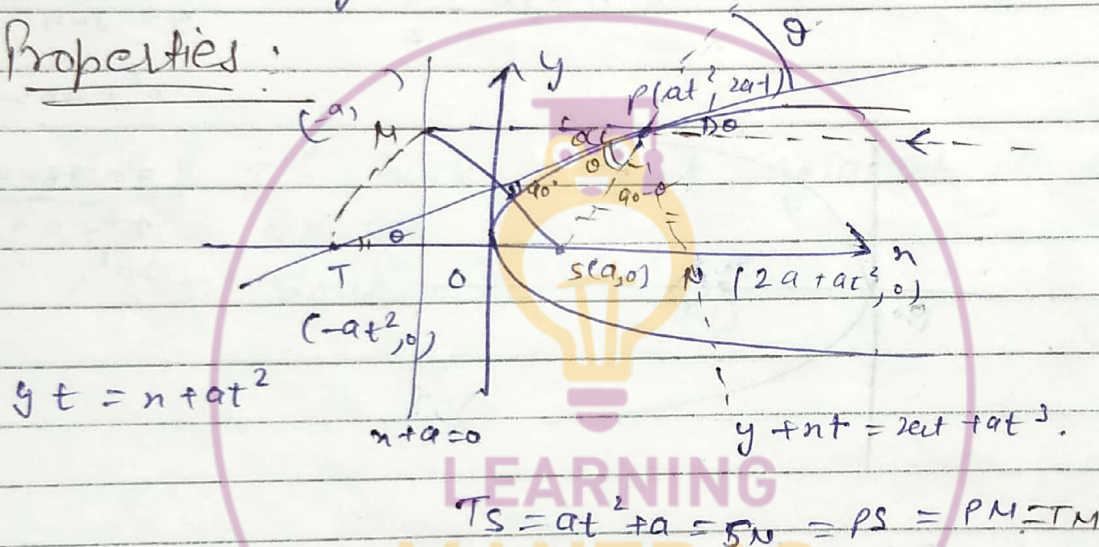 Properties :
y
θ
P(at², 2at)
(-a,     )
M
θ
α
θ
90°
90-θ
θ
x
T
O
S(a,0)
N (2a+at²,0)
(-at²,0)
yt = x+at²
x+a=0
y+xt = 2at+at³.
LEARNING
TS = at²+a = SN = PS = PM = TM